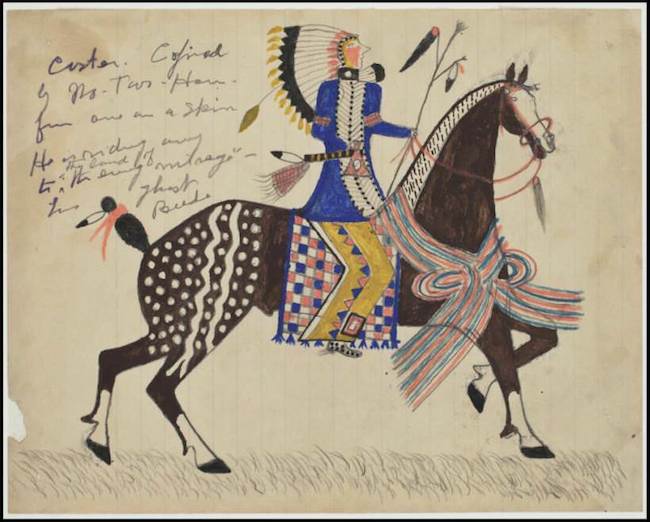 Custer. Copied
by No-Two-Horn-
from one on a skin
He is riding away
"the land of
to "the evening mirage" -
his ghost
Beede